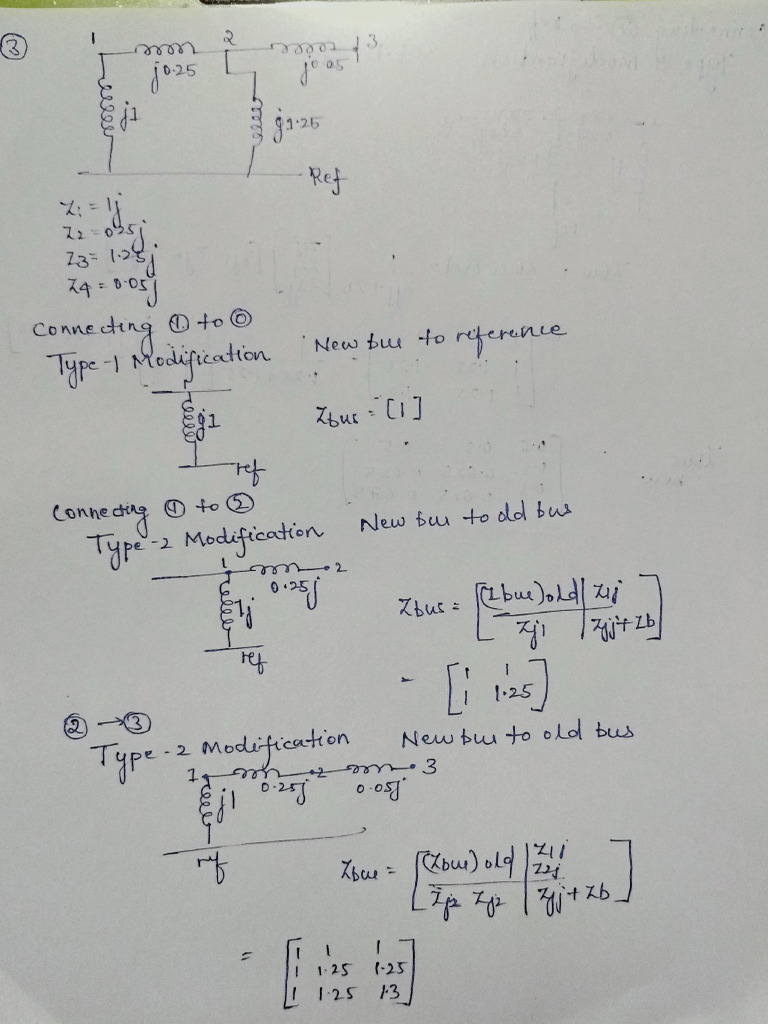 ③
1 2 3
j0.25 j0.05
j1 j1.25
Ref
Z1 = 1j
Z2 = 0.25j
Z3 = 1.25j
Z4 = 0.05j
Connecting ① to ⓪
Type-1 Modification New bus to reference
1
j1 Zbus = [1]
ref
Connecting ① to ②
Type-2 Modification New bus to old bus
1 2
0.25j
1j Zbus = [(Zbus)old | Z1j
Zj1 | Zjj+Zb]
ref
= [1 1
1 1.25]
② → ③
Type-2 Modification New bus to old bus
1 2 3
0.25j 0.05j
j1
ref
Zbus = [(Zbus) old | Z1j
Z2j
Zj2 | Zjj + Zb]
= [1 1 1
1 1.25 1.25
1 1.25 1.3]